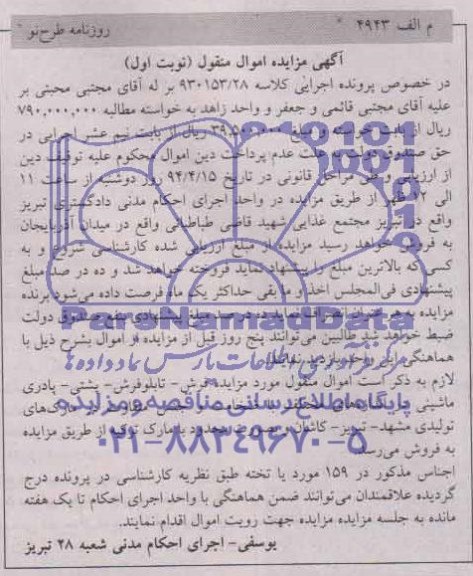 م الف ۴۹۴۳
روزنامه طرح نو
آگهی مزایده اموال منقول (نوبت اول)
در خصوص پرونده اجرایی کلاسه ۹۳۰۱۵۳/۲۸ بر له آقای مجتبی محبتی بر
علیه آقای مجتبی قائمی و جعفر و واحد زاهد به خواسته مطالبه ۷۹۰,۰۰۰,۰۰۰
ریال از بابت خواسته و مبلغ ۳۹,۵۰۰,۰۰۰ ریال از بابت نیم عشر اجرایی در
حق صندوق دولت به علت عدم پرداخت دین اموال محکوم علیه توقیف دین
از ارزیابی و طی مراحل قانونی در تاریخ ۹۴/۴/۱۵ روز دوشنبه از ساعت ۱۱
الی ۱۲ ظهر از طریق مزایده در واحد اجرای احکام مدنی دادگستری تبریز
واقع در تبریز مجتمع غذایی شهید قاضی طباطبائی واقع در میدان آذربایجان
به فروش خواهد رسید مزایده از مبلغ ارزیابی شده کارشناسی شروع و به
کسی که بالاترین مبلغ را پیشنهاد نماید فروخته خواهد شد و ده در صد مبلغ
پیشنهادی فی المجلس اخذ و ما بقی حداکثر یک ماه فرصت داده می‌شود برنده
مزایده به هر عنوان انصراف نماید ده در صد مبلغ پیشنهادی بنفع صندوق دولت
ضبط خواهد شد طالبین می‌توانند پنج روز قبل از مزایده از اموال بشرح ذیل با
هماهنگی این واحد بازدید نمایند.
لازم به ذکر است اموال منقول مورد مزایده فرش- تابلوفرش- پشتی- پادری
ماشینی در
تولیدی مشهد- تبریز- کاشان از طریق مزایده
به فروش می‌رسد.
اجناس مذکور در ۱۵۹ مورد یا تخته طبق نظریه کارشناسی در پرونده درج
گردیده علاقمندان می‌توانند ضمن هماهنگی با واحد اجرای احکام تا یک هفته
مانده به جلسه مزایده مزایده جهت رویت اموال اقدام نمایند.
یوسفی- اجرای احکام مدنی شعبه ۲۸ تبریز
ParsNamadData
مرکز فرآوری اطلاعات پارس نماد داده ها
پایگاه اطلاع رسانی مناقصه و مزایده
۰۲۱-۸۸۳۴۹۶۷۰-۵